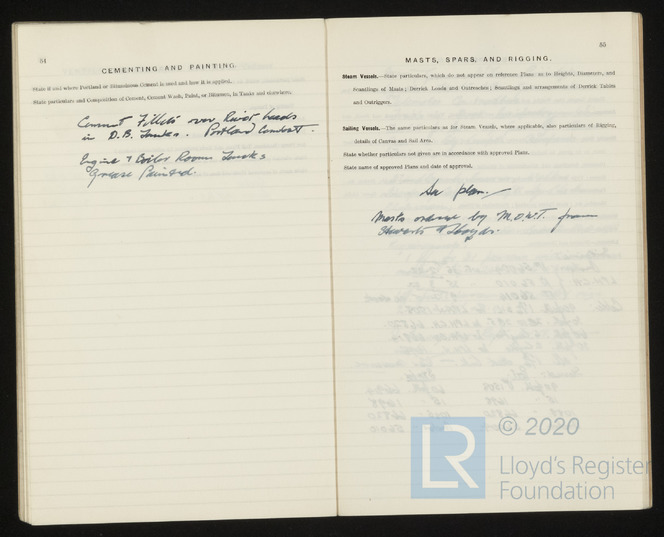 54
CEMENTING AND PAINTING.
State if and where Portland or Bituminous Cement is used and how it is applied.
State particulars and Composition of Cement, Cement Wash, Paint, or Bitumen, in Tanks and elsewhere.
Cement Fillets over Rivet heads
in D.B. Tanks. Portland Cement.
Engine & Boiler Room Tanks
Grease Painted.
55
MASTS, SPARS, AND RIGGING.
Steam Vessels.—State particulars, which do not appear on reference Plans as to Heights, Diameters, and
Scantlings of Masts; Derrick Loads and Outreaches; Scantlings and arrangements of Derrick Tables
and Outriggers.
Sailing Vessels.—The same particulars as for Steam Vessels, where applicable, also particulars of Rigging,
details of Canvas and Sail Area.
State whether particulars not given are in accordance with approved Plans.
State name of approved Plans and date of approval.
See plan.
Masts ordered by M.O.W.T. from
Stewarts & Lloyds.
LR
© 2020
Lloyd's Register
Foundation